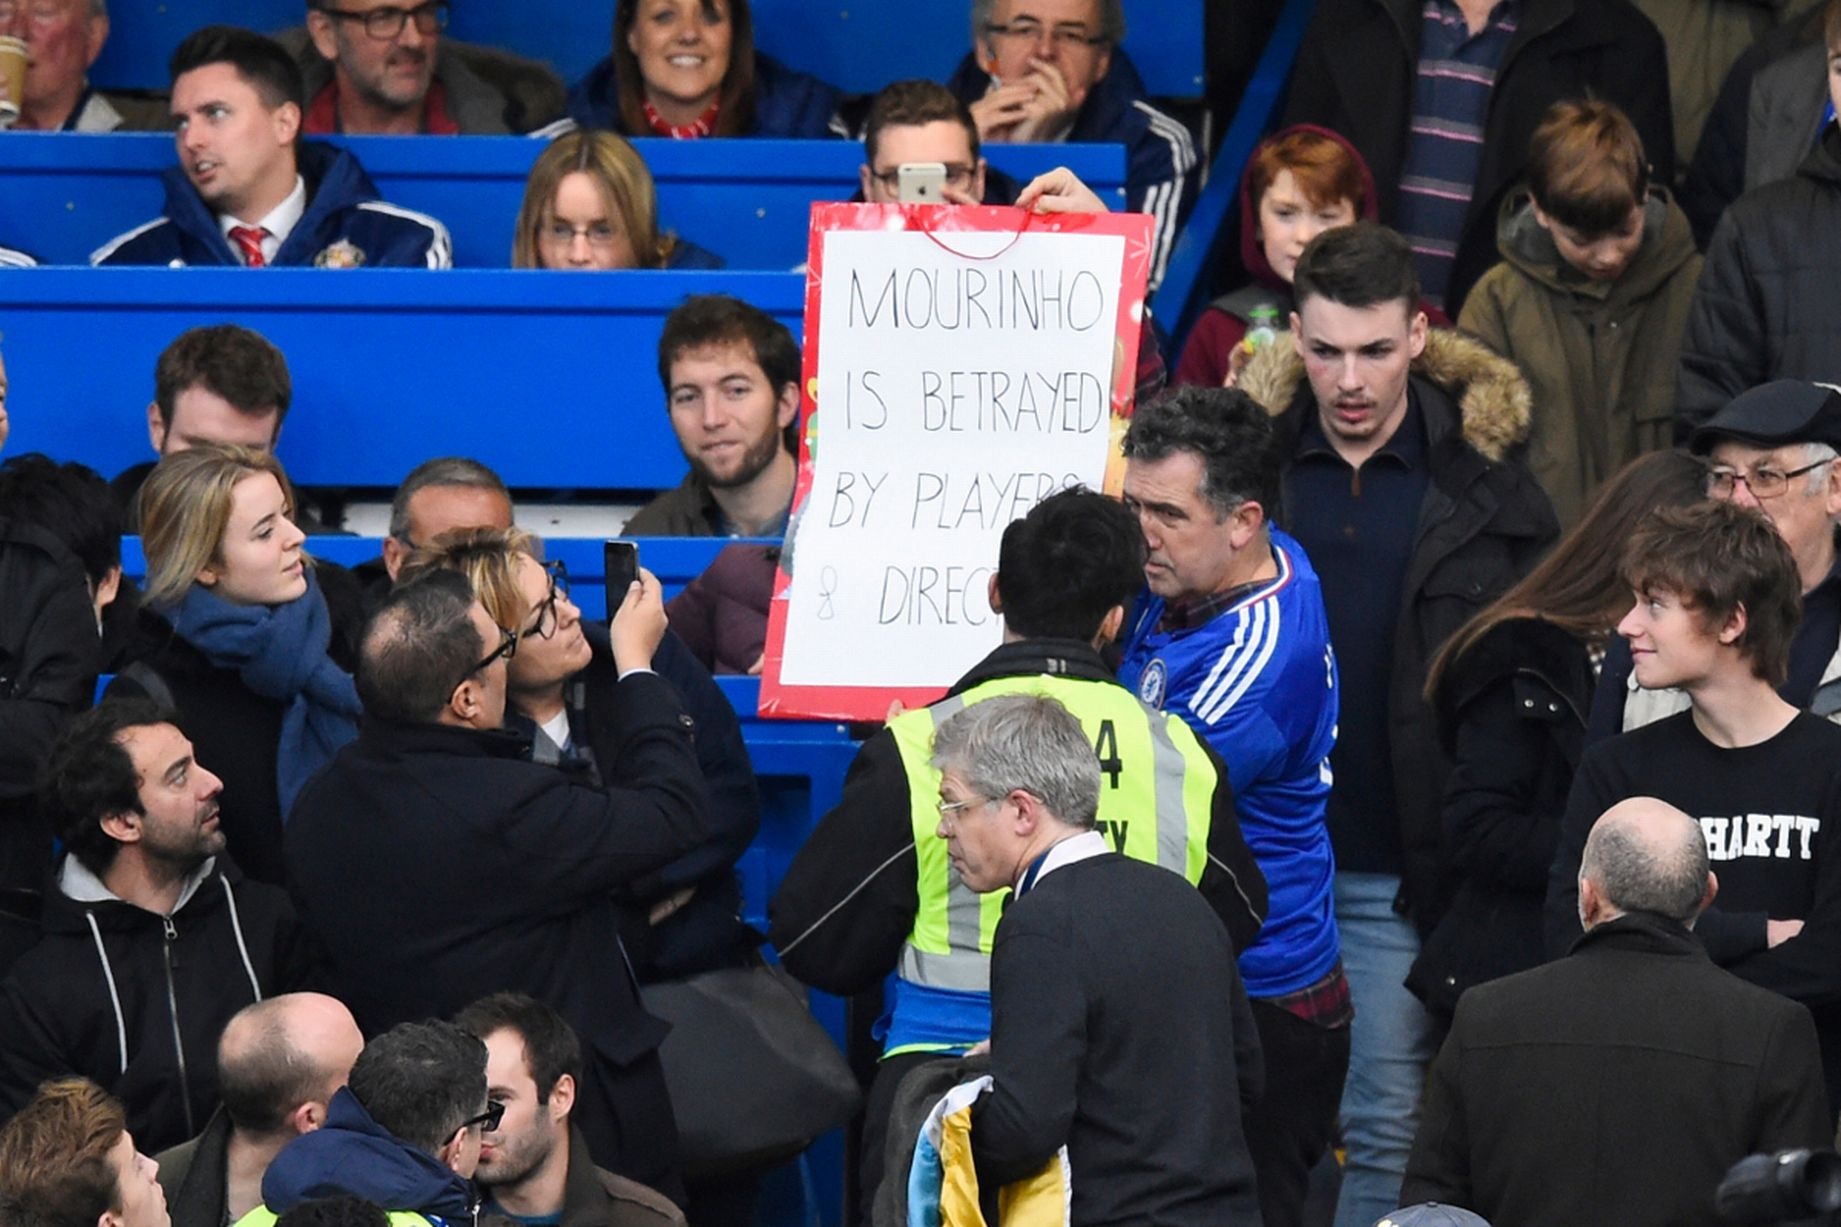 MOURINHO
IS BETRAYED
BY PLAYERS
& DIREC
4
TY
HARTT